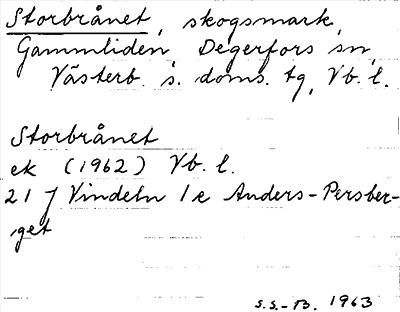 Storbrånet, skogsmark,
Gammliden, Degerfors sn,
Västerb. s. doms. tg, Vb. l.
Storbrånet
ek (1962) Vb. l.
21 J Vindeln 1 e Anders-Persber-
get
S.S.-B. 1963